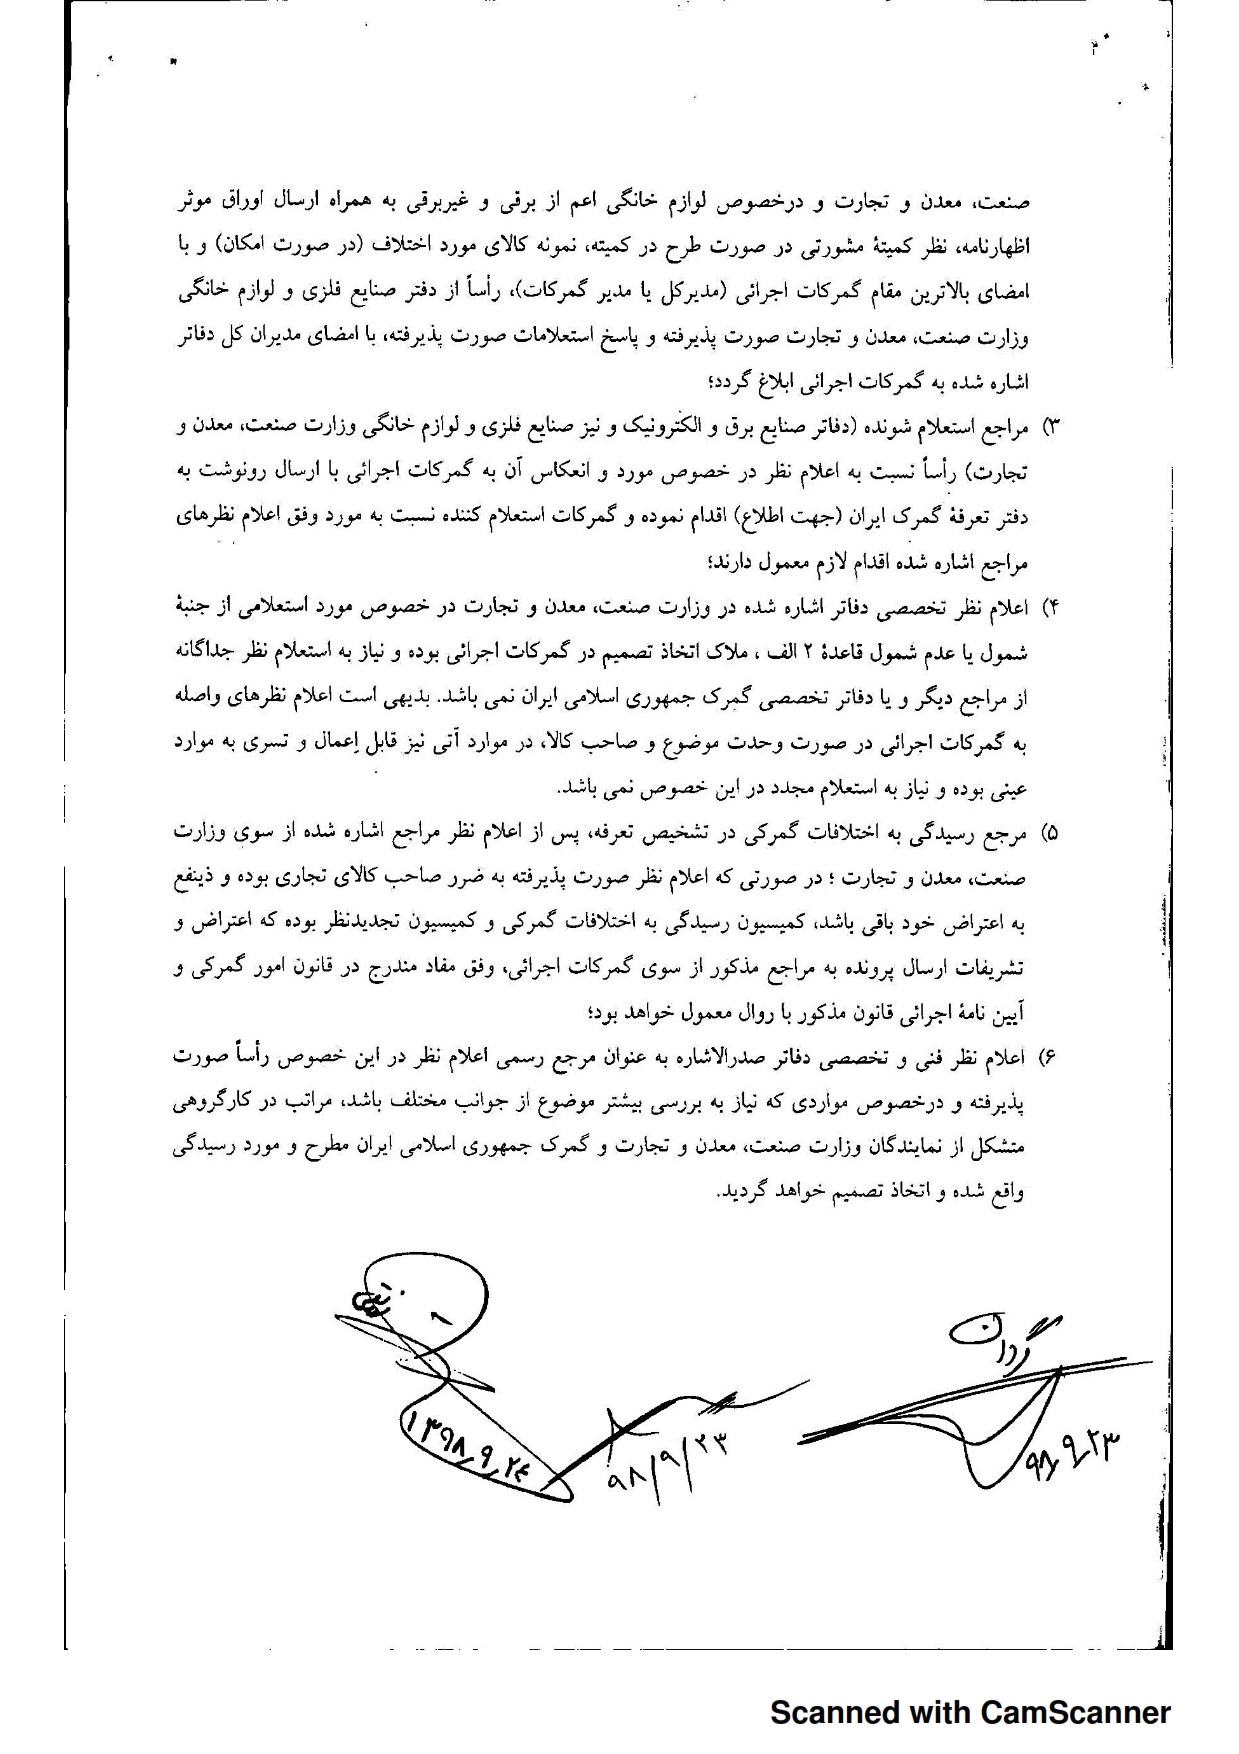 صنعت، معدن و تجارت و درخصوص لوازم خانگی اعم از برقی و غیربرقی به همراه ارسال اوراق موثر
اظهارنامه، نظر کمیتۀ مشورتی در صورت طرح در کمیته، نمونه کالای مورد اختلاف (در صورت امکان) و با
امضای بالاترین مقام گمرکات اجرائی (مدیرکل یا مدیر گمرکات)، رأساً از دفتر صنایع فلزی و لوازم خانگی
وزارت صنعت، معدن و تجارت صورت پذیرفته و پاسخ استعلامات صورت پذیرفته، با امضای مدیران کل دفاتر
اشاره شده به گمرکات اجرائی ابلاغ گردد؛
۳) مراجع استعلام شونده (دفاتر صنایع برق و الکترونیک و نیز صنایع فلزی و لوازم خانگی وزارت صنعت، معدن و
تجارت) رأساً نسبت به اعلام نظر در خصوص مورد و انعکاس آن به گمرکات اجرائی با ارسال رونوشت به
دفتر تعرفۀ گمرک ایران (جهت اطلاع) اقدام نموده و گمرکات استعلام کننده نسبت به مورد وفق اعلام نظرهای
مراجع اشاره شده اقدام لازم معمول دارند؛
۴) اعلام نظر تخصصی دفاتر اشاره شده در وزارت صنعت، معدن و تجارت در خصوص مورد استعلامی از جنبۀ
شمول یا عدم شمول قاعدۀ ۲ الف ، ملاک اتخاذ تصمیم در گمرکات اجرائی بوده و نیاز به استعلام نظر جداگانه
از مراجع دیگر و یا دفاتر تخصصی گمرک جمهوری اسلامی ایران نمی باشد. بدیهی است اعلام نظرهای واصله
به گمرکات اجرائی در صورت وحدت موضوع و صاحب کالا، در موارد آتی نیز قابل إعمال و تسری به موارد
عینی بوده و نیاز به استعلام مجدد در این خصوص نمی باشد.
۵) مرجع رسیدگی به اختلافات گمرکی در تشخیص تعرفه، پس از اعلام نظر مراجع اشاره شده از سوی وزارت
صنعت، معدن و تجارت ؛ در صورتی که اعلام نظر صورت پذیرفته به ضرر صاحب کالای تجاری بوده و ذینفع
به اعتراض خود باقی باشد، کمیسیون رسیدگی به اختلافات گمرکی و کمیسیون تجدیدنظر بوده که اعتراض و
تشریفات ارسال پرونده به مراجع مذکور از سوی گمرکات اجرائی، وفق مفاد مندرج در قانون امور گمرکی و
آیین نامۀ اجرائی قانون مذکور با روال معمول خواهد بود؛
۶) اعلام نظر فنی و تخصصی دفاتر صدرالاشاره به عنوان مرجع رسمی اعلام نظر در این خصوص رأساً صورت
پذیرفته و درخصوص مواردی که نیاز به بررسی بیشتر موضوع از جوانب مختلف باشد، مراتب در کارگروهی
متشکل از نمایندگان وزارت صنعت، معدن و تجارت و گمرک جمهوری اسلامی ایران مطرح و مورد رسیدگی
واقع شده و اتخاذ تصمیم خواهد گردید.
۹۸٫۹٫۲۳
۹۸/۹/۲۳
۱۳۹۸٫۹٫۲۴
Scanned with CamScanner